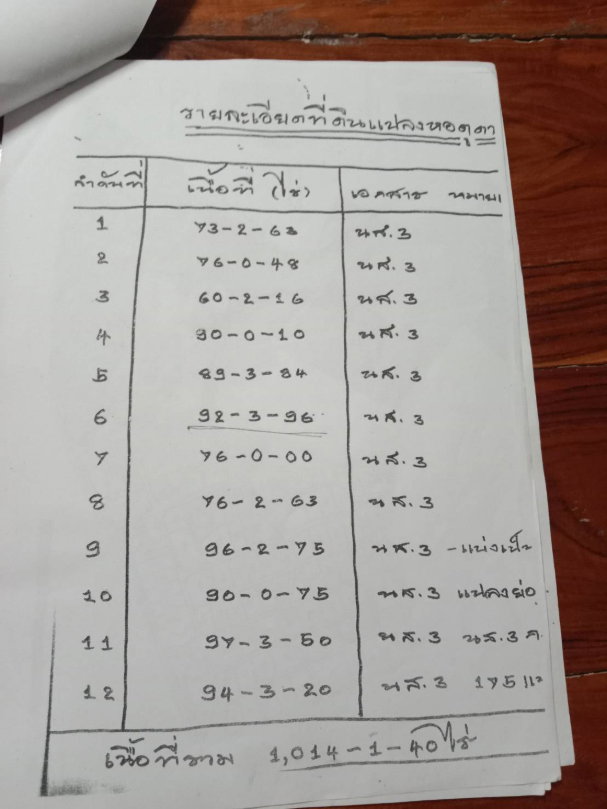 รายละเอียดที่ดินแปลงหอดูดาว
ลำดับที่ เนื้อที่ (ไร่) เอกสาร
1 73-2-63 นส.3
2 76-0-48 นส.3
3 60-2-16 นส.3
4 90-0-10 นส.3
5 89-3-84 นส.3
6 92-3-96 นส.3
7 76-0-00 นส.3
8 76-2-63 นส.3
9 96-2-75 นส.3 -แบ่งเป็น
10 90-0-75 นส.3 แปลงย่อ
11 97-3-50 นส.3 นส.3 ก
12 94-3-20 นส.3 175
เนื้อที่รวม 1,014-1-40 ไร่